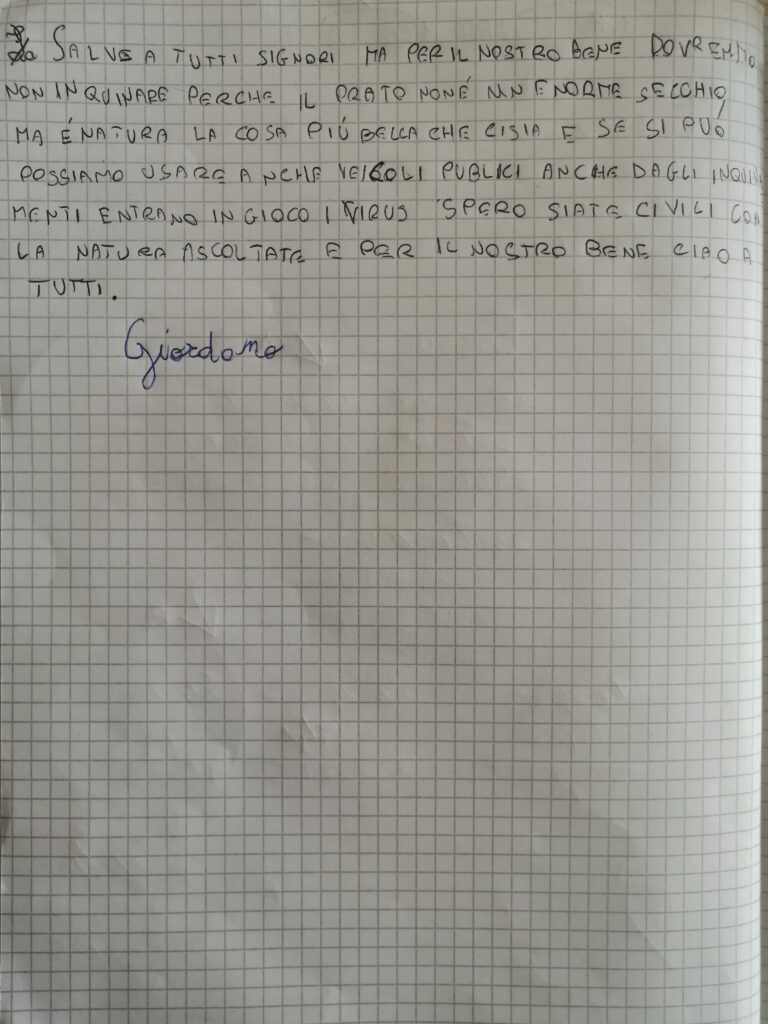 SALVE A TUTTI SIGNORI MA PER IL NOSTRO BENE DOVREMMO
NON INQUINARE PERCHE IL PRATO NON É UN ENORME SECCHIO
MA É NATURA LA COSA PIÚ BELLA CHE CI SIA E SE SI PUÓ
POSSIAMO USARE ANCHE VEICOLI PUBLICI ANCHE DAGLI INQUINA
MENTI ENTRANO IN GIOCO I VIRUS SPERO SIATE CIVILI CON
LA NATURA ASCOLTATE E PER IL NOSTRO BENE CIAO A
TUTTI.
Giordano